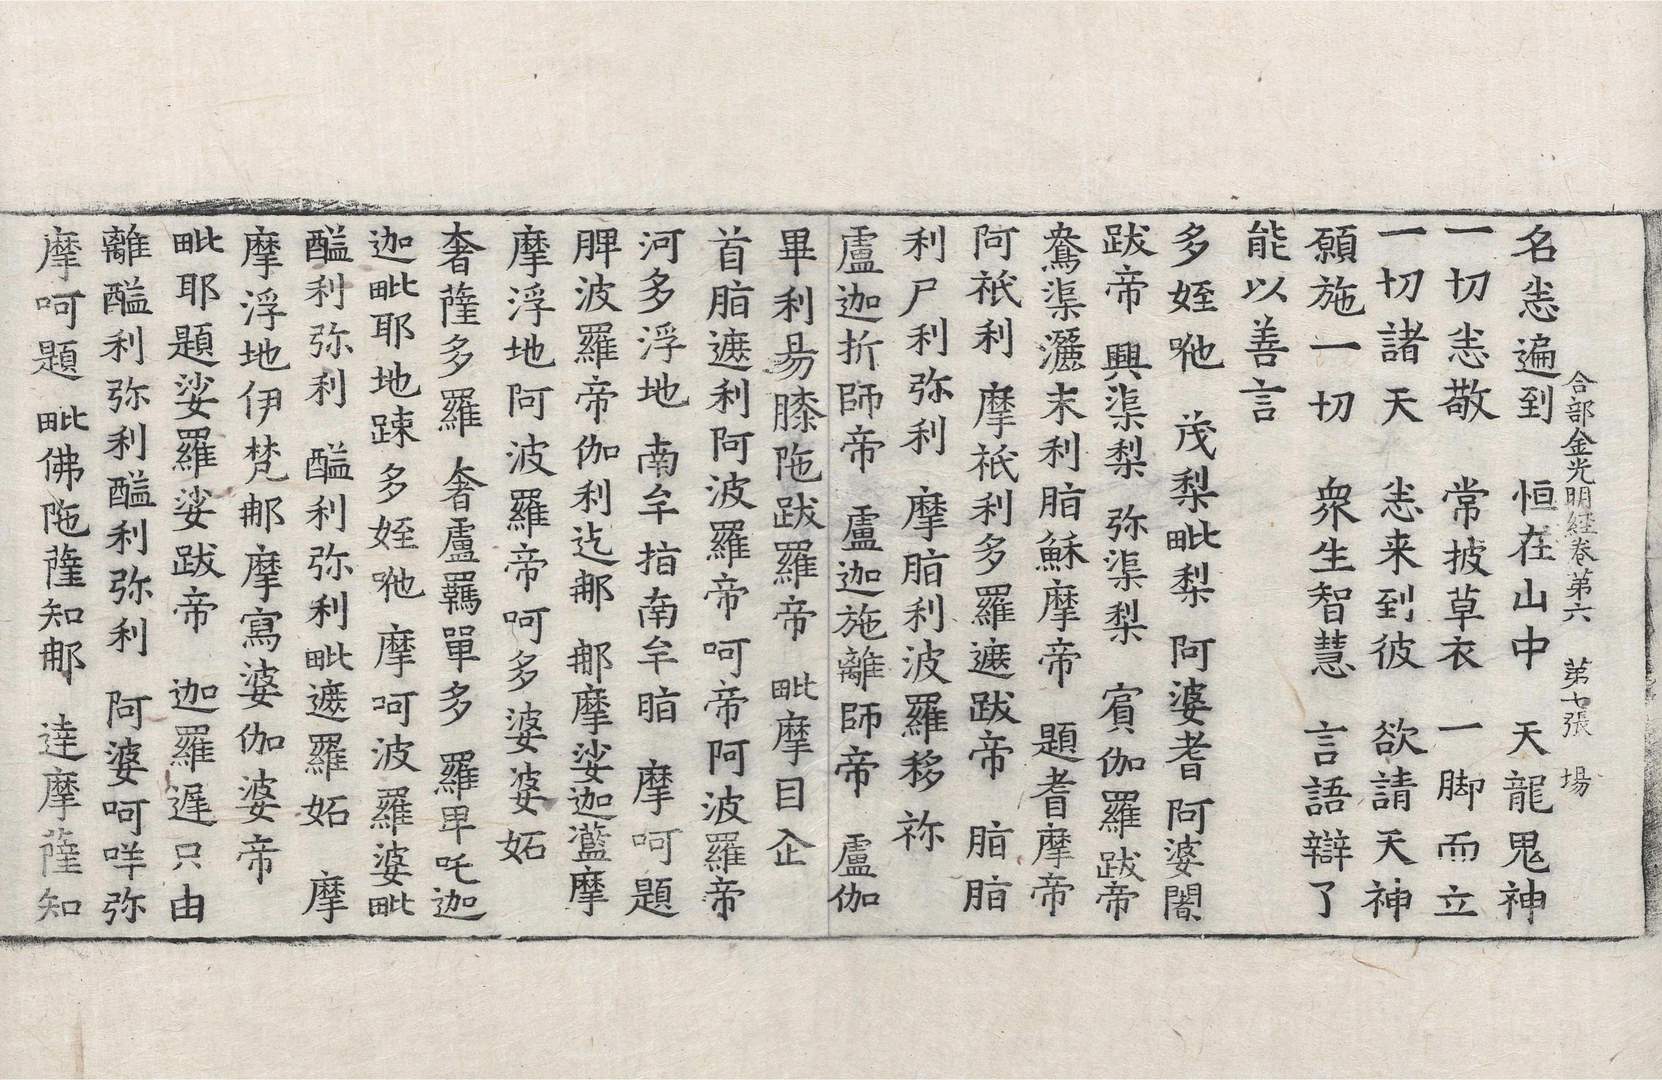 合部金光明經卷第六　第七張　場
名恙遍到　恒在山中　天龍鬼神
一切恙敬　常披草衣　一脚而立
一切諸天　恙来到彼　欲請天神
願施一切　衆生智慧　言語辯了
能以善言
多姪咃　茂梨毗梨　阿婆耆阿婆闍
跋帝　興渠梨　弥渠梨　賓伽羅跋帝
鴦渠灑末利脂穌摩帝　題耆摩帝
阿祇利　摩祇利多羅遮跋帝　脂脂
利尸利弥利　摩脂利波羅移祢
盧迦折師帝　盧迦施離師帝　盧伽
畢利易膝陁跋羅帝　毗摩目企
首脂遮利阿波羅帝呵帝阿波羅帝
河多浮地　南牟指南牟脂　摩呵題
脾波羅帝伽利迄那　那摩娑迦濫摩
摩浮地阿波羅帝呵多婆婆妬
奢薩多羅　奢盧羈單多　羅卑吒迦
迦毗耶地踈多姪咃　摩呵波羅婆毗
醯利弥利　醯利弥利毗遮羅妬　摩
摩浮地伊梵那摩寫婆伽婆帝
毗耶題娑羅娑跋帝　迦羅遲只由
離醯利弥利醯利弥利　阿婆呵咩弥
摩呵題　毗佛陁薩知那　達摩薩知